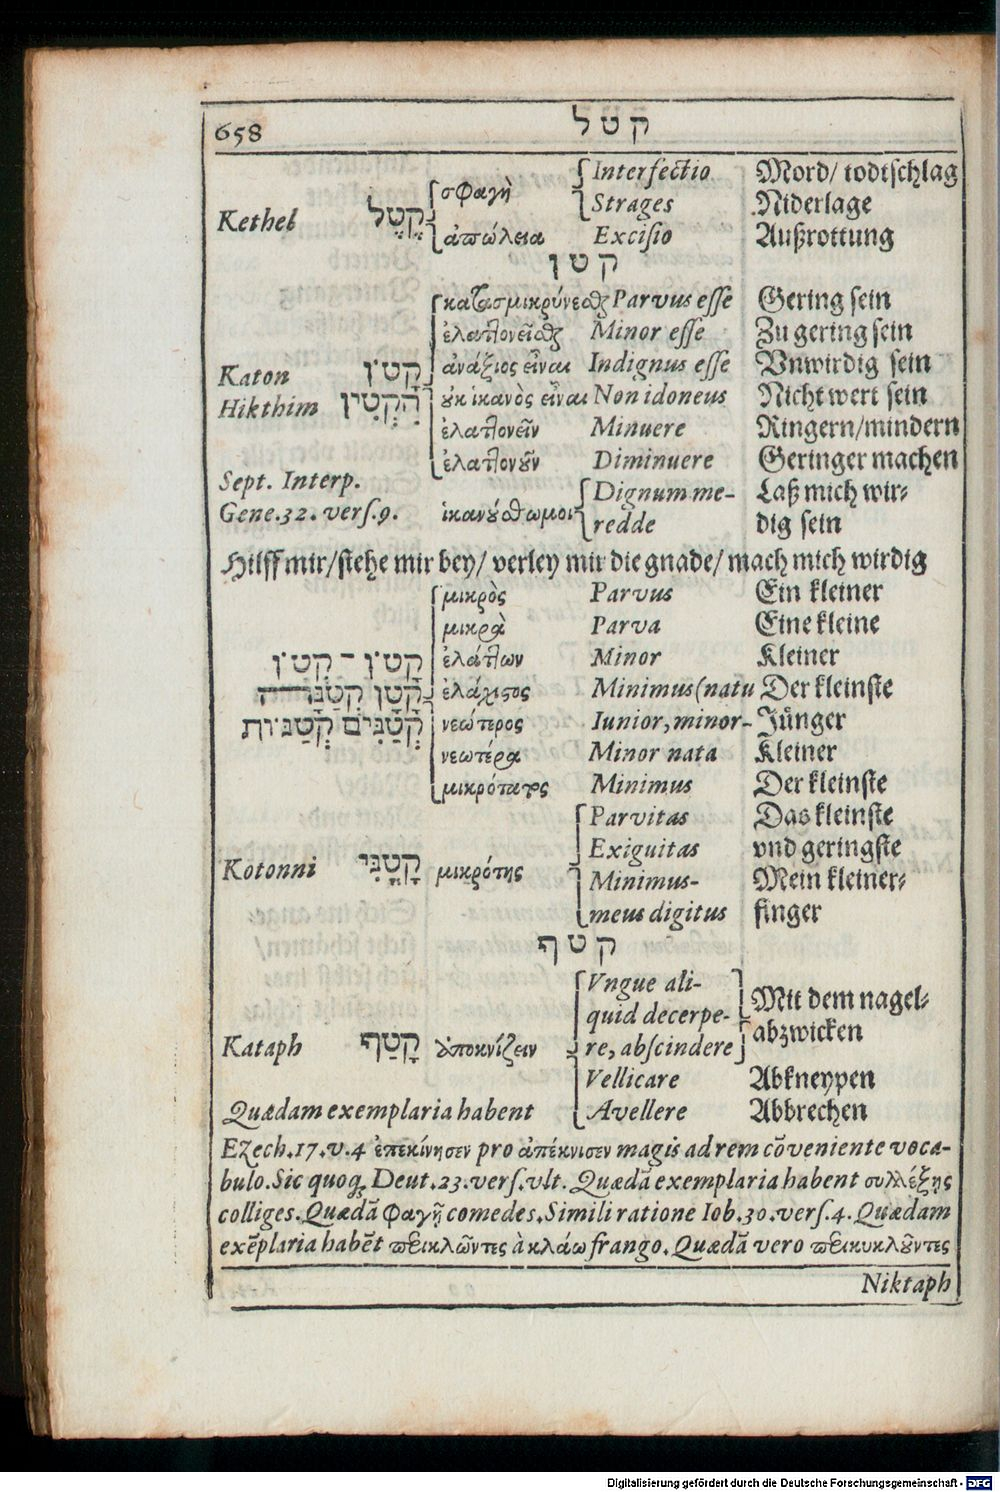 658 קטל
σφαγὴ Interfectio Mord/ todtschlag
Strages Niderlage
Kethel קֶטֶל ἀπώλεια Excisio Außrottung
קטן
κατασμικρύνεσθαι Parvus esse Gering sein
ἐλαττονεῖσθαι Minor esse Zu gering sein
Katon קָטֹן ἀνάξιος εἶναι Indignus esse Vnwirdig sein
Hikthim הִקְטִין ȣκ ἱκανὸς εἶναι Non idoneus Nicht wert sein
ἐλαττονεῖν Minuere Ringern/mindern
Sept. Interp. ἐλαττονȣ͂ν Diminuere Geringer machen
Gene.32. vers.9. ἱκανȣ́σθωμοι Dignum me- Laß mich wir-
redde dig sein
Hilff mir/stehe mir bey/ verley mir die gnade/ mach mich wirdig
μικρὸς Parvus Ein kleiner
μικρὰ Parva Eine kleine
קָטֹן – קְטֹן ἐλάττων Minor Kleiner
קָטָן קְטַנָּה ἐλάχιστος Minimus(natu Der kleinste
קְטַנִּים קְטַנּוֹת νεώτερος Iunior, minor- Jünger
νεωτέρα Minor nata Kleiner
μικρότατος Minimus Der kleinste
Parvitas Das kleinste
Kotonni קָטֳנִּי μικρότης Exiguitas vnd geringste
Minimus- Mein kleiner-
meus digitus finger
קטף
Vngue ali- Mit dem nagel-
quid decerpe- abzwicken
Kataph קָטַף ἀποκνίζειν re, abscindere
Vellicare Abkneypen
Quædam exemplaria habent Avellere Abbrechen
Ezech.17.v.4 ἐπεκίνησεν pro ἀπέκνισεν magis ad rem cōveniente voca-
bulo. Sic quoq; Deut.23.vers.vlt. Quædā exemplaria habent συλλέξῃς
colliges. Quædā φαγῇ comedes. Simili ratione Iob.30.vers.4. Quædam
exēplaria habēt περικλῶντες à κλάω frango. Quædā vero περικυκλȣ͂ντες
Niktaph
Digitalisierung gefördert durch die Deutsche Forschungsgemeinschaft - DFG